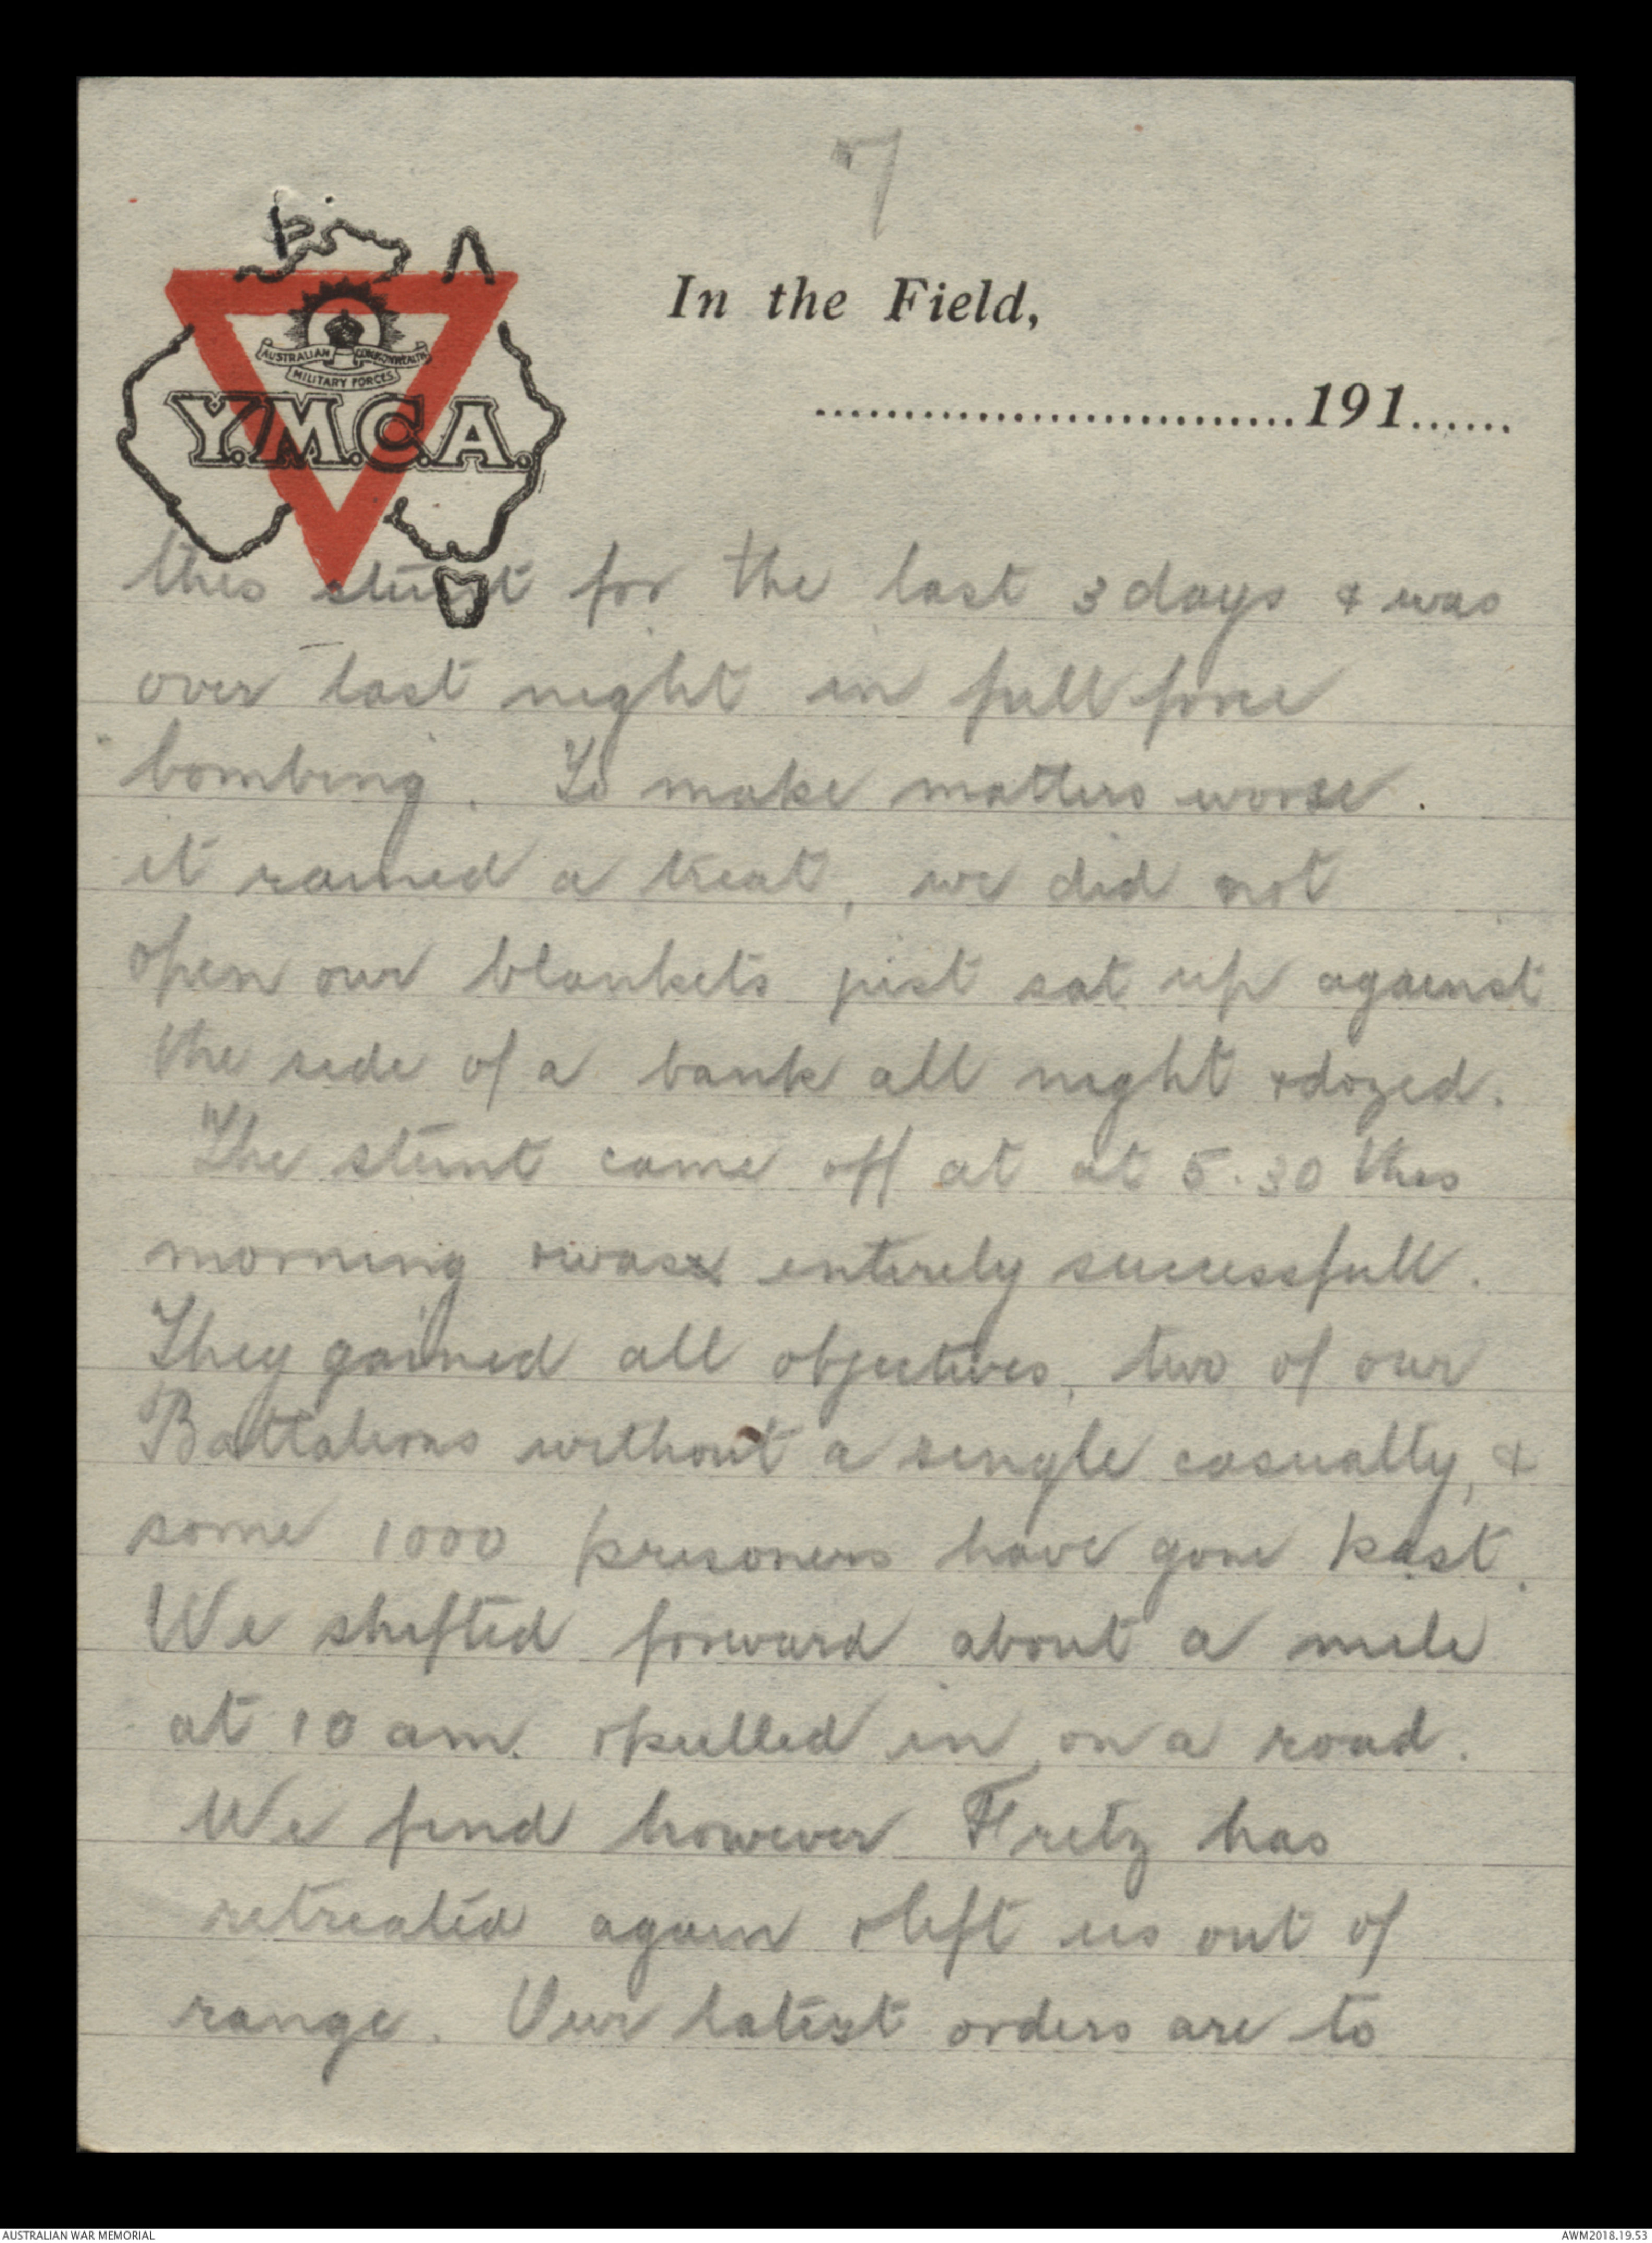 7
AUSTRALIAN COMMONWEALTH
MILITARY FORCES
Y.M.C.A.
In the Field,
............................191......
this stunt for the last 3 days & was
over last night in full force
bombing. To make matters worse.
it rained a treat, we did not
open our blankets just sat up against
the side of a bank all night & dozed.
The stunt came off at at 5.30 this
morning & was entirely successfull.
They gained all objectives, two of our
Battalions without a single casualty, &
some 1000 prisoners have gone past.
We shifted forward about a mile
at 10 am. & pulled in on a road.
We find however Fritz has
retreated again & left us out of
range. Our latest orders are to
AUSTRALIAN WAR MEMORIAL
AWM2018.19.53